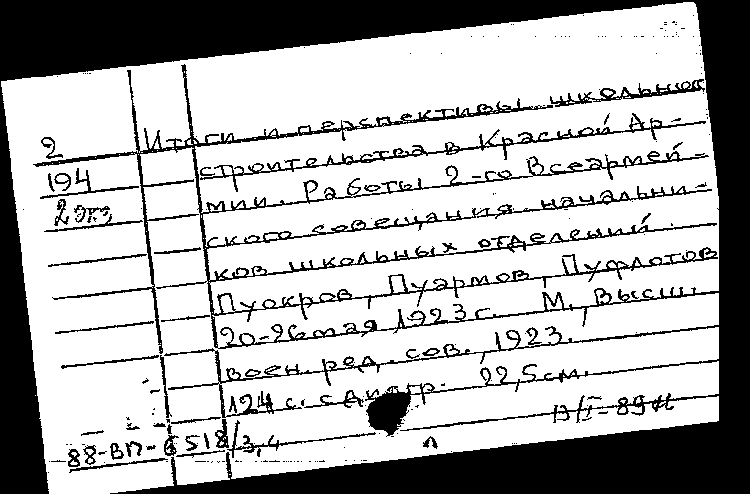 2 Итоги и перспективы школьного
194 строительства в Красной Ар-
2 экз мии. Работы 2-го Всеармей-
ского совещания начальни-
ков школьных отделений
Пуокров, Пуармов, Пуфлотов
20-26 мая 1923 г. М., Высш.
воен. ред. сов., 1923.
124 с. с диагр. 22,5 см.
88-ВП-6518/3,4